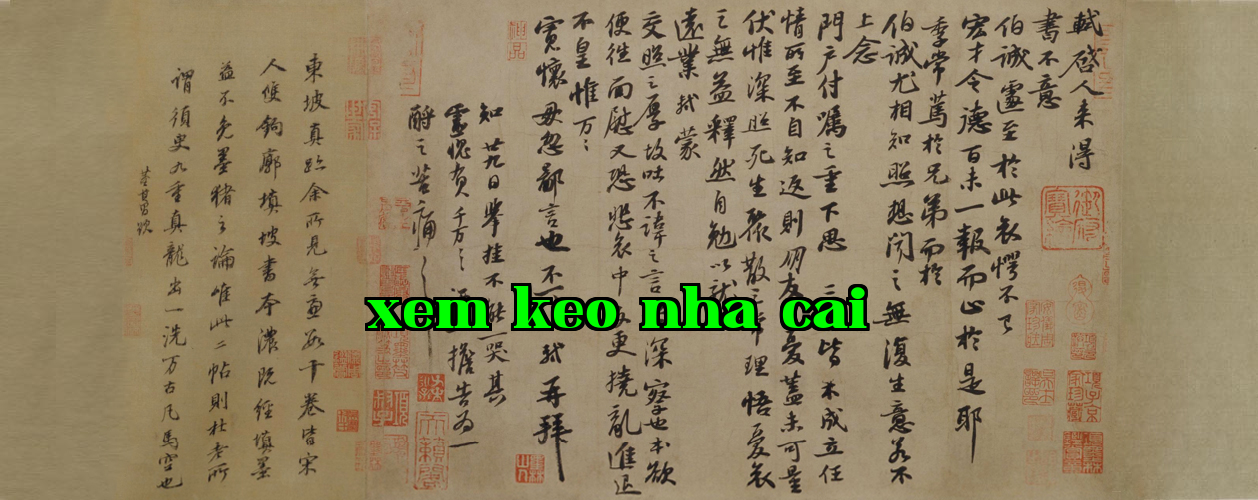 軾啓人來得
書不意
伯誠遽至於此哀愕不已
宏才令德百未一報而止於是耶
季常篤於兄弟而於
伯誠尤相知照想聞之無復生意若不
上念
門户付囑之重下思三皆未成立任
情所至不自知返則朋友之憂蓋未可量
伏惟深照死生聚散之常理悟憂哀
之無益釋然自勉以就
遠業軾蒙
交照之厚故吐不諱之言深察也本欲
便往面慰又恐悲哀中更撓亂進退
不皇惟万〻
寬懷毋忽鄙言也不一軾再拜
知廿九日舉挂不能一哭其
靈愧負千万〻酒擔告為一
酹之苦痛〻
東坡真跡余所見無慮數十卷皆宋
人雙鉤廓填坡書本濃既經填墨
益不免墨豬之論唯此二帖則杜老所
謂須臾九重真龍出一洗万古凡馬空也
董其昌題
xem keo nha cai